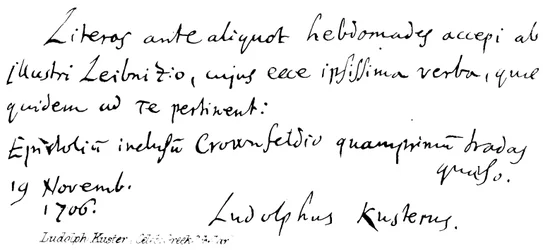 Literas ante aliquot hebdomades accepi ab
illustri Leibnizio, cujus ecce ipsissima verba, quae
quidem ad Te pertinent:
Epistoliū inclusū Crownfeldio quamprimū tradas
quaeso.
19 Novemb.
1706.
Ludolphus Kusterus.
Ludolph Kuster